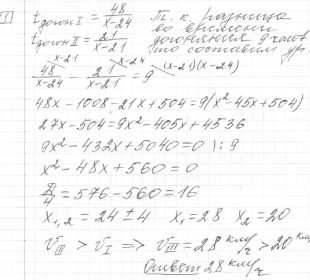 II
t догон I = 48/(x-24) Т. к. разница
t догон II = 21/(x-21) во времени
догоняния 9 часов
48/(x-24) - 21/(x-21) = 9 (x-21)(x-24)
48x - 1008 - 21x + 504 = 9(x² - 45x + 504)
27x - 504 = 9x² - 405x + 4536
9x² - 432x + 5040 = 0 | : 9
x² - 48x + 560 = 0
Д/4 = 576 - 560 = 16
x₁,₂ = 24 ± 4 x₁ = 28 x₂ = 20
V III > V I => V III = 28 км/ч > 20 км
Ответ 28 км/ч